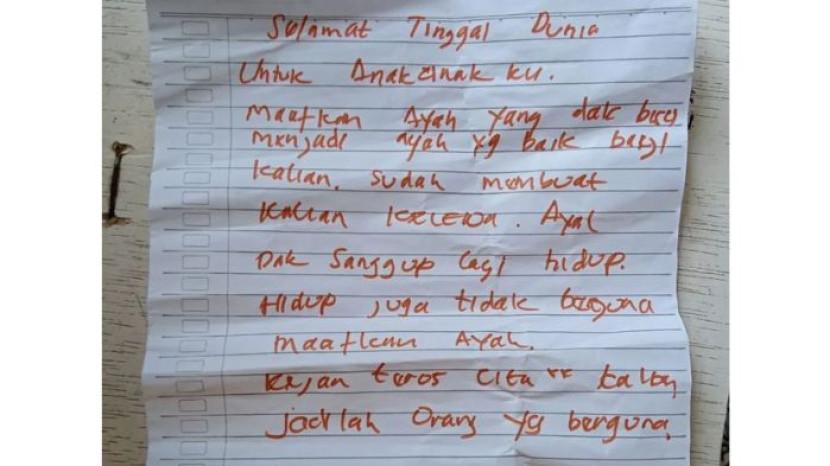 Selamat Tinggal Dunia
Untuk Anak2nak ku.
Maafkan Ayah yang dak bisa
menjadi ayah yg baik bagi
kalian. sudah membuat
kalian kecewa. Ayah
Dak Sanggup lagi hidup.
Hidup juga tidak berguna
maafkan Ayah.
Kejan teros Cita"
Jadilah Orang yg berguna.